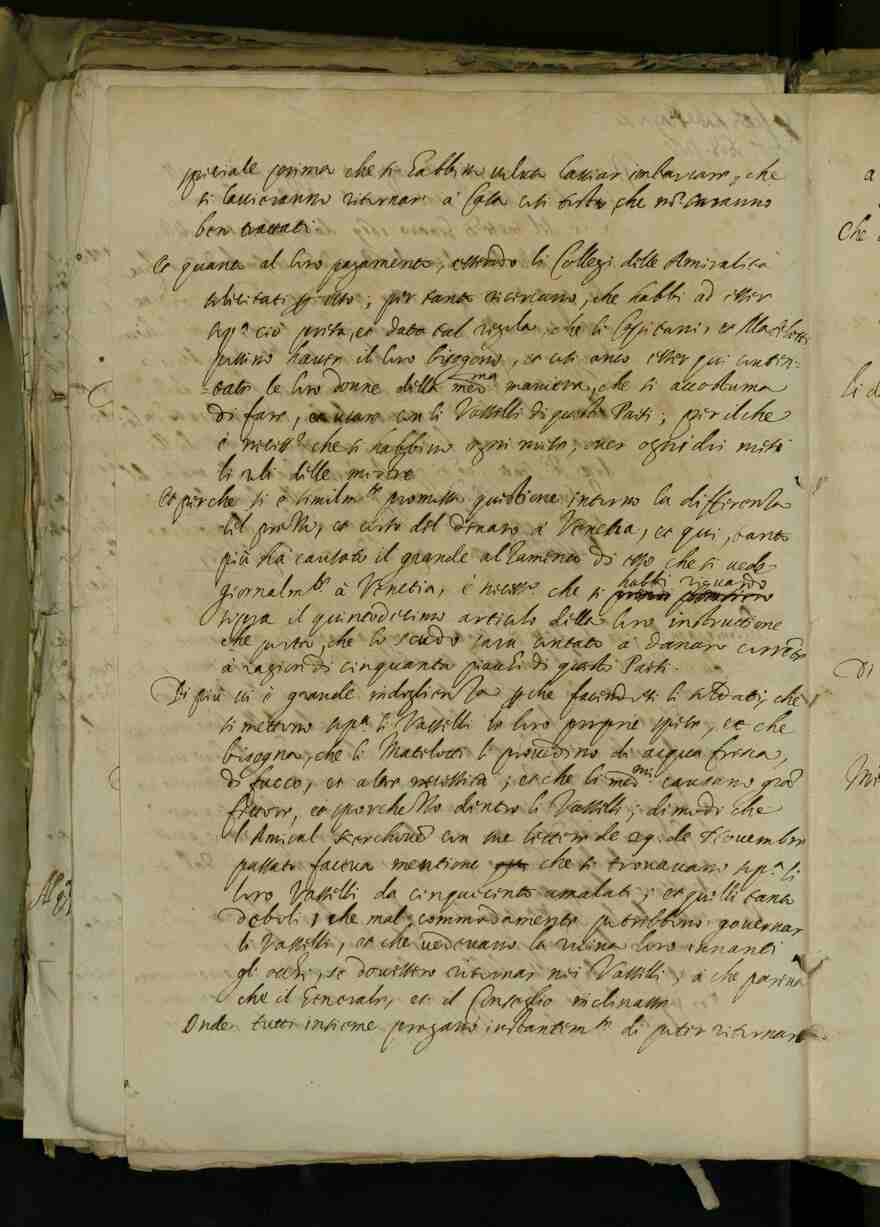 speciale prima che si habbia voluta lassiar imbarcare, che
si lassieranno ritornar à Casa così tosto che no saranno
ben trattati.
Et quanto al loro pagamento, essendo li Collegi delle Amiralità
per tanto ricercano, che habbi ad esser
sop.ª ciò prista, et data tal regola che li Capitani, et Matelotti
possino haver il loro bisogno, et così anco esser qui conten=
=tate le loro donne della med.ma maniera, che si accostuma
di fare, et usare con li Vasselli di questi Parti; per il che
è necess.º che si habbino ogni mese, over ogni dui mesi
li roli delle mostre
Et perche si è similm.te promossa questione intorno la differenza
del prezzo, et corso del denaro à Venetia, et qui, tanto
più hà causato il grande alzamento di esso che si vede
giornalm.te à Venetia, è necess.º che si habbi riguardo
sopra il quintodecimo articolo della loro instruttione
che porta, che lo scudo sarà contato à danaro corrẽte
à ragion di cinquanta piachi di questi Parti.
Di più vi è grande indoglienza p che facendosi li soldati, che
si mettono sop.ª li Vasselli le loro proprie spese, et che
bisogna, che li Matelotti li provedino di acqua fresca,
di fuoco, et altre necessità; et che li med.mi causano grã
fettore, et sporchezzo dentro li Vasselli; di modo che
l'Amiral con sue lettere de 29. de Novembre
passato faceva mentione che si trovavano sop.ª li
loro Vasselli da cinquecento amalati; et quelli tanto
deboli, che mal commodamente potrebbono governar
li Vasselli, et che vedevano la ruina loro innanti
gli occhi, se dovessero ritornar nei Vasselli, à che pareva
che il Generale, et il Conseglio inclinasse
Onde tutti insieme pregano instantem.te di poter ritornare